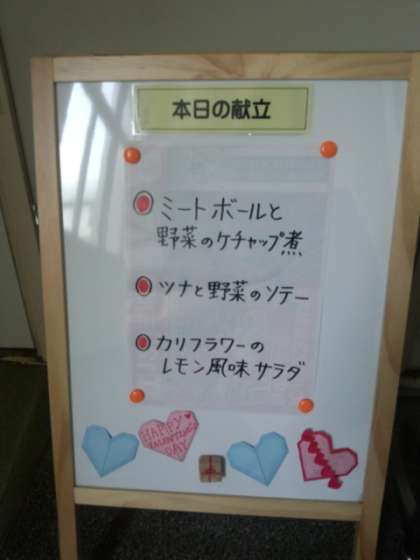 本日の献立
ミートボールと
野菜のケチャップ煮
ツナと野菜のソテー
カリフラワーの
レモン風味サラダ
HAPPY
VALENTINE'S
DAY